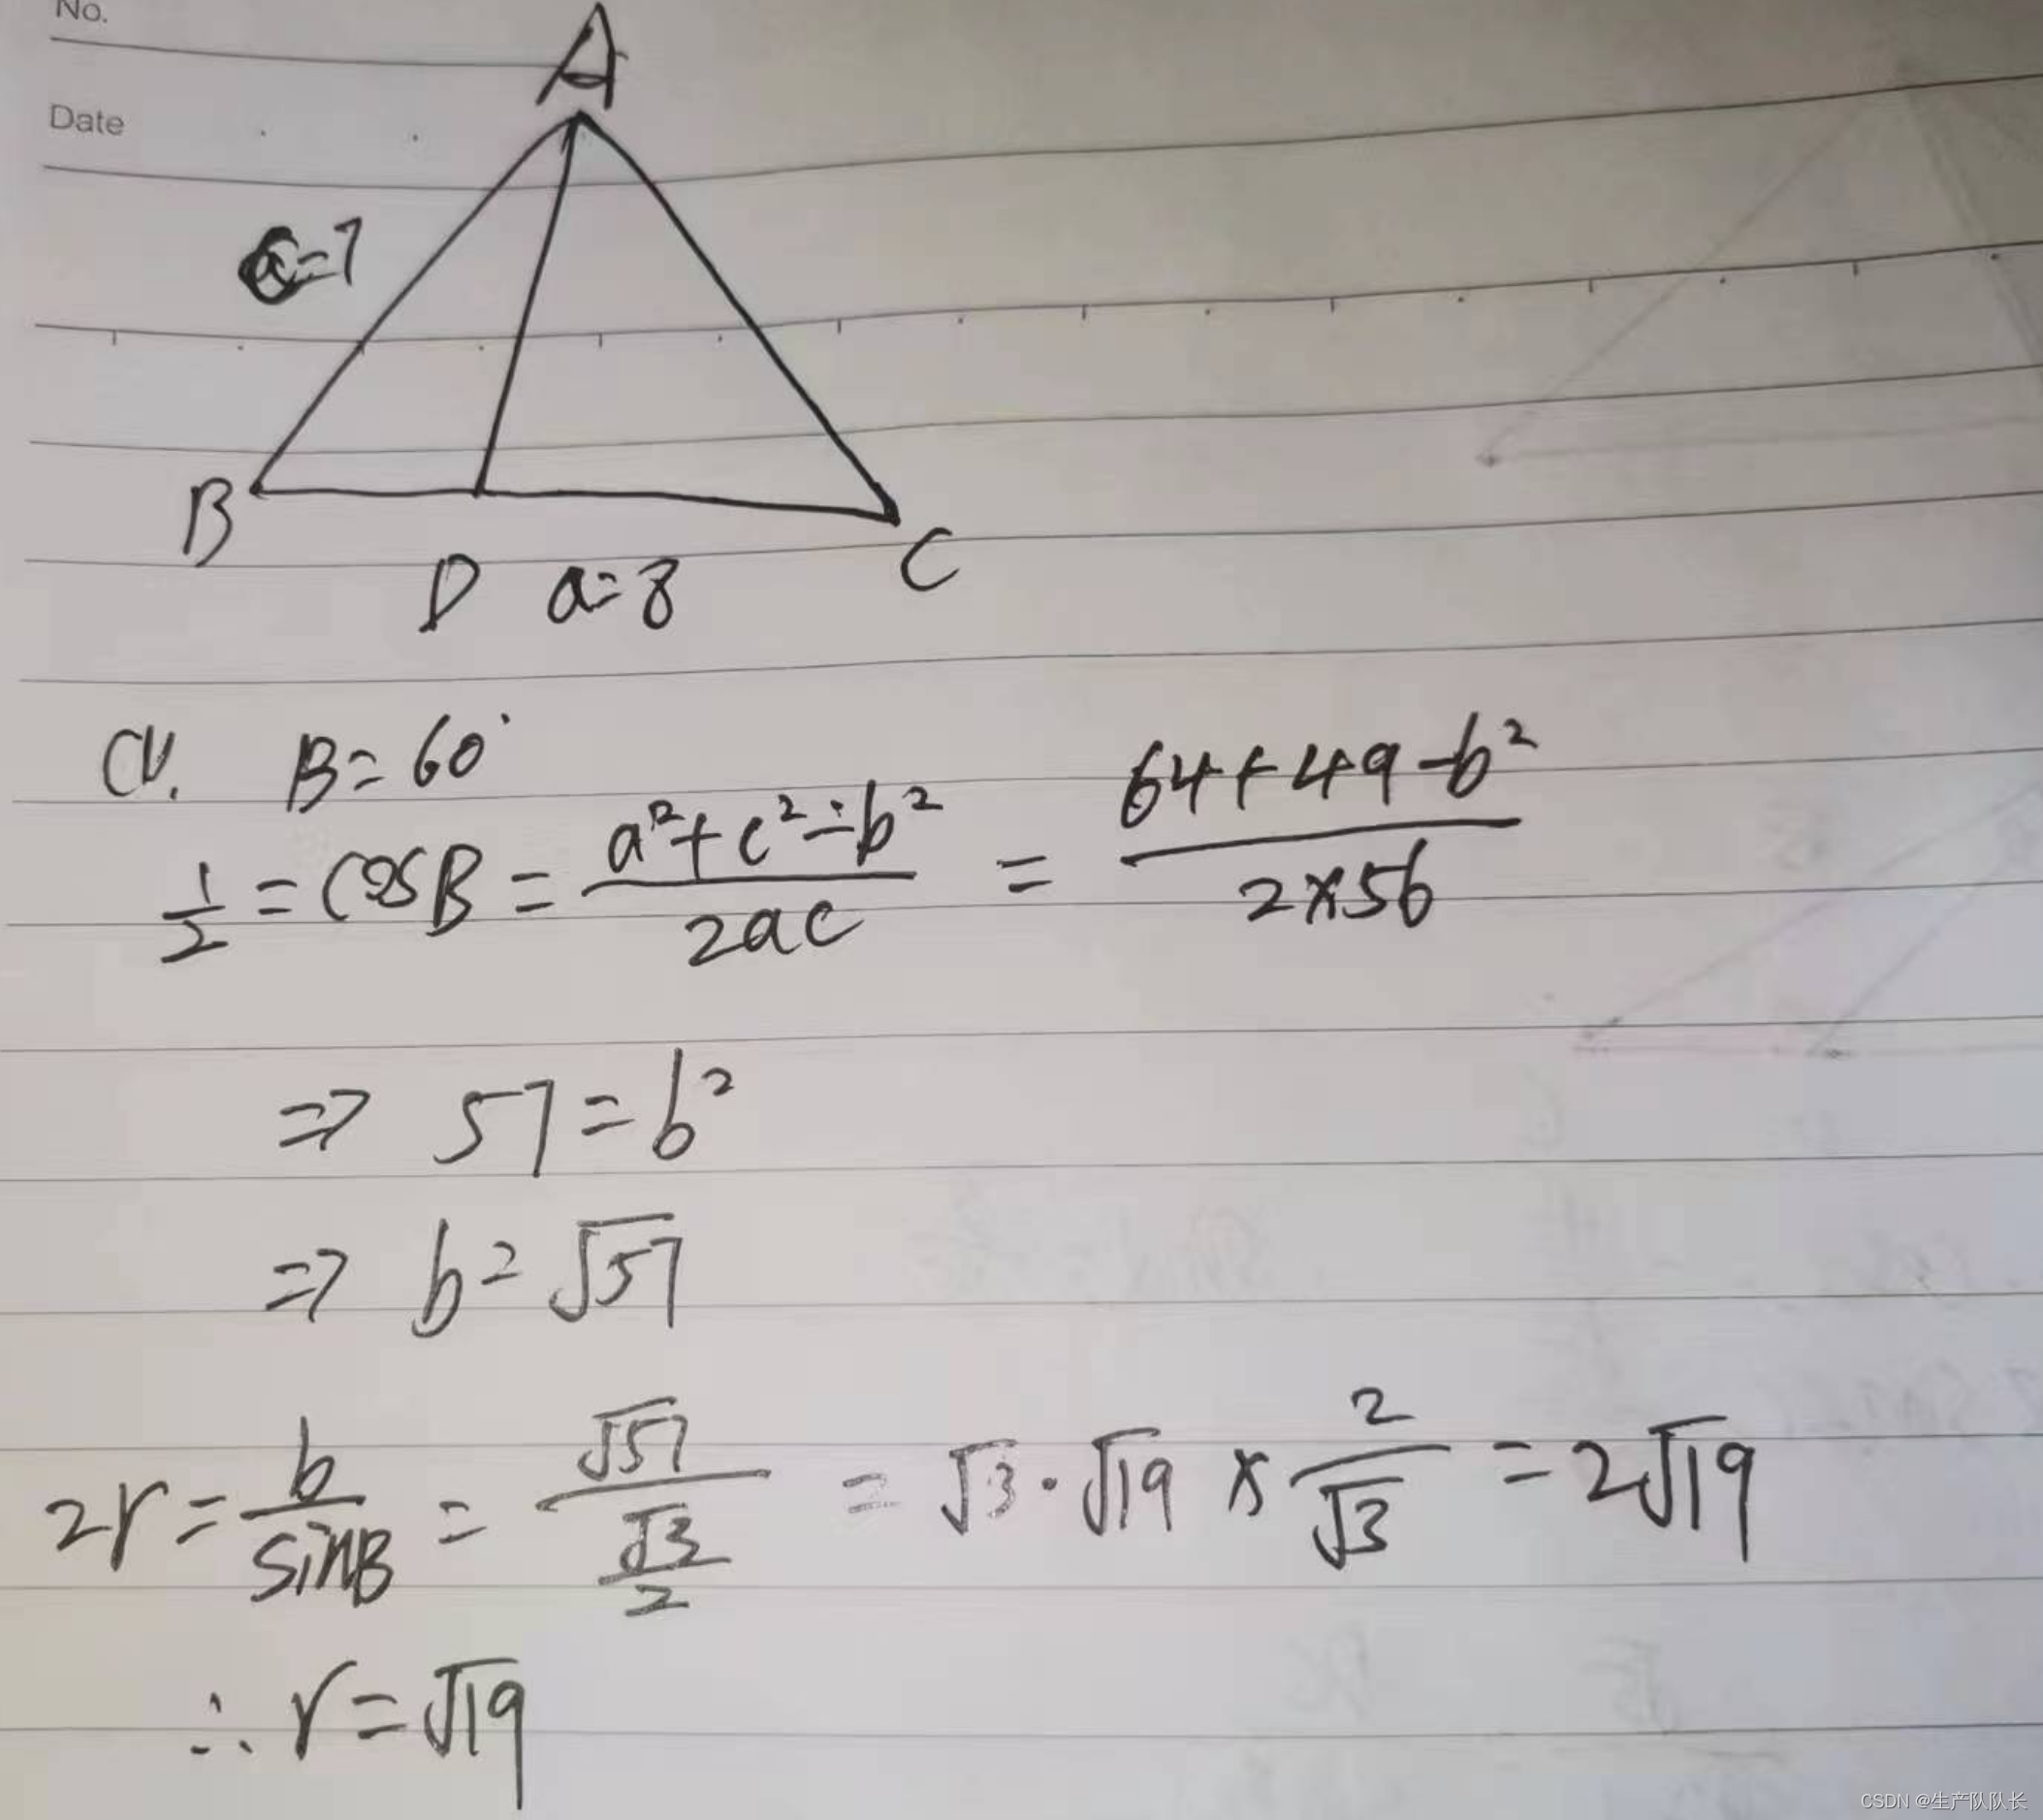 No.
A
Date
c=7
B
C
D a=8
(1). B=60°
1/2 = cosB = (a²+c²-b²)/(2ac) = (64+49-b²)/(2×56)
⇒ 57=b²
⇒ b=√57
2r = b/sinB = √57/(√3/2) = √3·√19 × 2/√3 = 2√19
∴ r=√19
CSDN @生产队队长